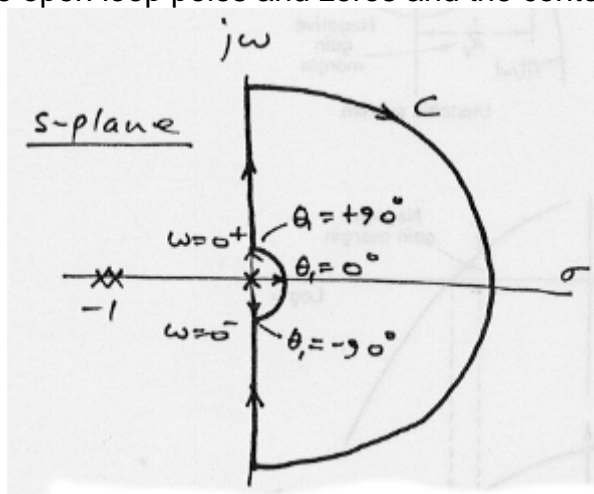 o open loop poles and zeros and the conto
jω
s-plane
C
θ₁ = +90°
ω=0⁺
θ₁ = 0°
σ
-1
ω=0⁻
θ₁ = -90°